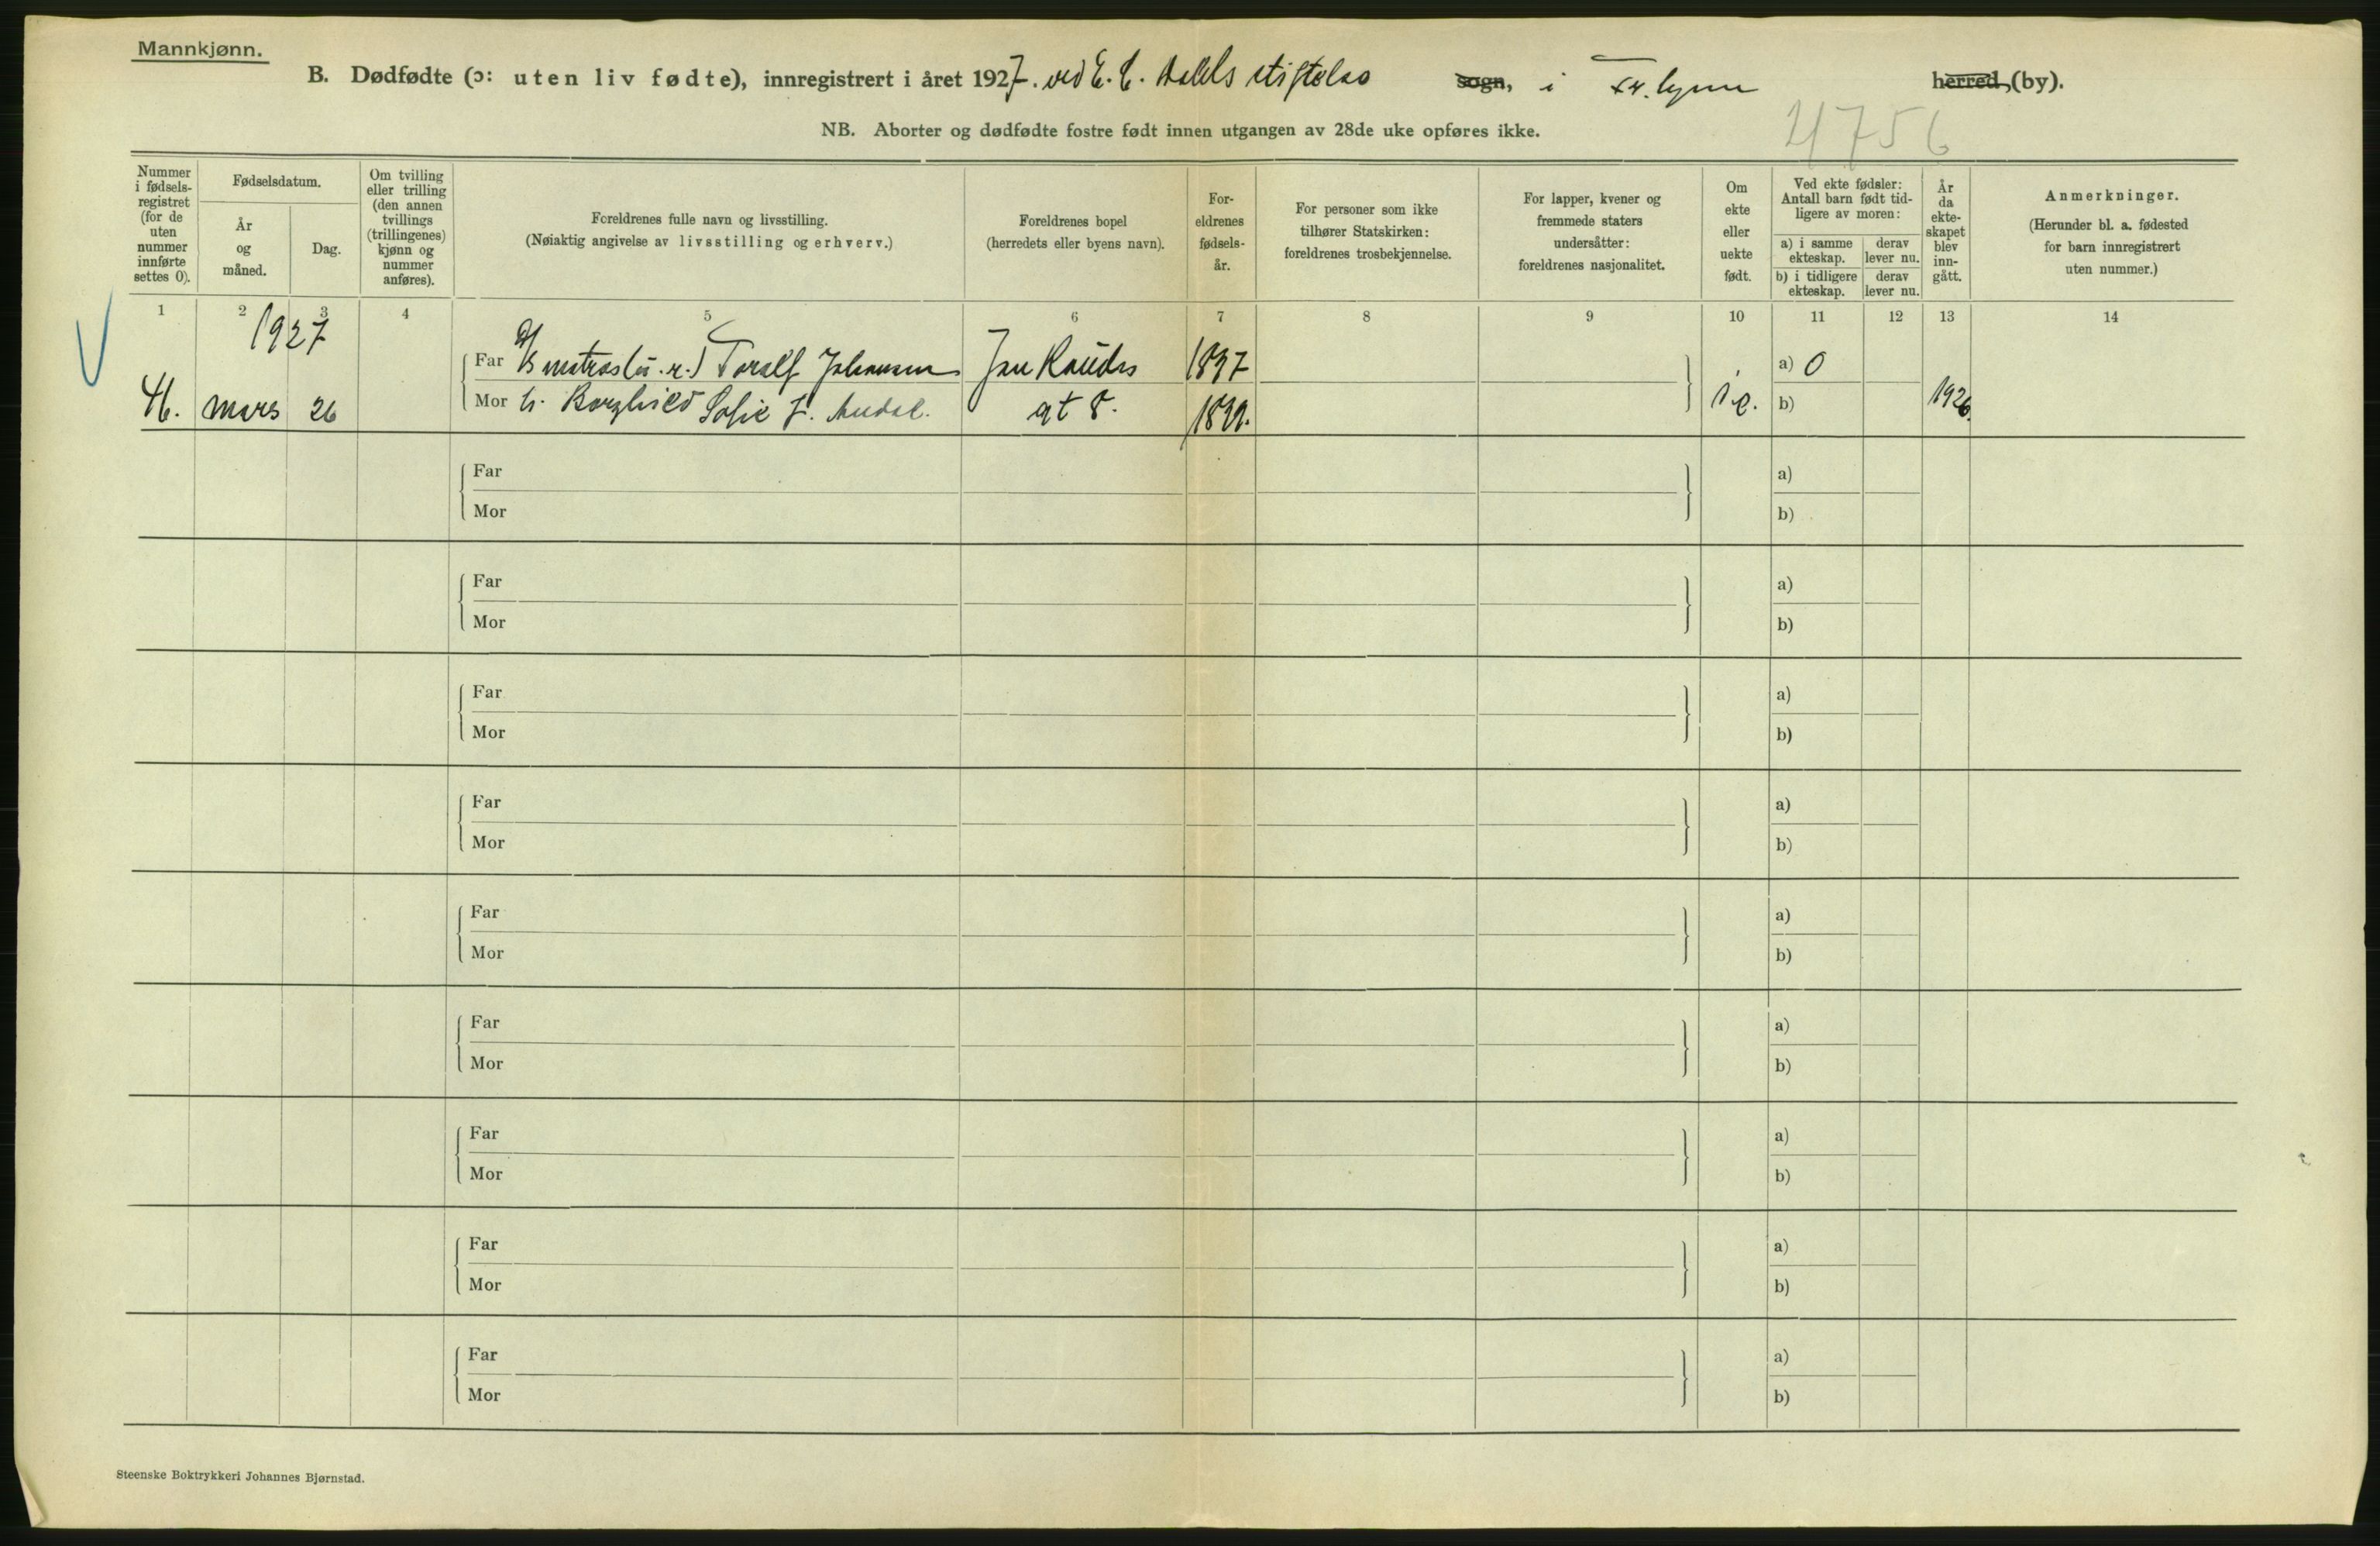 Mannkjønn.
B. Dødfødte (ɔ: uten liv fødte), innregistrert i året 1927. ved E. C. Dahls stiftelse sogn, i Tr.hjem herred, (by).
4756
NB. Aborter og dødfødte fostre født innen utgangen av 28de uke opføres ikke.
Nummer
i fødsels-
registret
(for de
uten
nummer
innførte
settes 0).
Fødselsdatum.
År
og
måned.
Dag.
Om tvilling
eller trilling
(den annen
tvillings
(trillingenes)
kjønn og
nummer
anføres).
Foreldrenes fulle navn og livsstilling.
(Nøiaktig angivelse av livsstilling og erhverv.)
Foreldrenes bopel
(herredets eller byens navn).
For-
eldrenes
fødsels-
år.
For personer som ikke
tilhører Statskirken:
foreldrenes trosbekjennelse.
For lapper, kvener og
fremmede staters
undersåtter:
foreldrenes nasjonalitet.
Om
ekte
eller
uekte
født.
Ved ekte fødsler:
Antall barn født tid-
ligere av moren:
a) i samme
ekteskap.
derav
lever nu.
b) i tidligere
ekteskap.
derav
lever nu.
År
da
ekte-
skapet
blev
inn-
gått.
Anmerkninger.
(Herunder bl. a. fødested
for barn innregistrert
uten nummer.)
1 2 3 4 5 6 7 8 9 10 11 12 13 14
1927
Far matros Toralf Johansen 1897 a) 0
46. mars 26 Mor h. Borghild Sofie f. gt 8. 1899. i e. b) 1926.
Far a)
Mor b)
Far a)
Mor b)
Far a)
Mor b)
Far a)
Mor b)
Far a)
Mor b)
Far a)
Mor b)
Far a)
Mor b)
Far a)
Mor b)
Far a)
Mor b)
Steenske Boktrykkeri Johannes Bjørnstad.